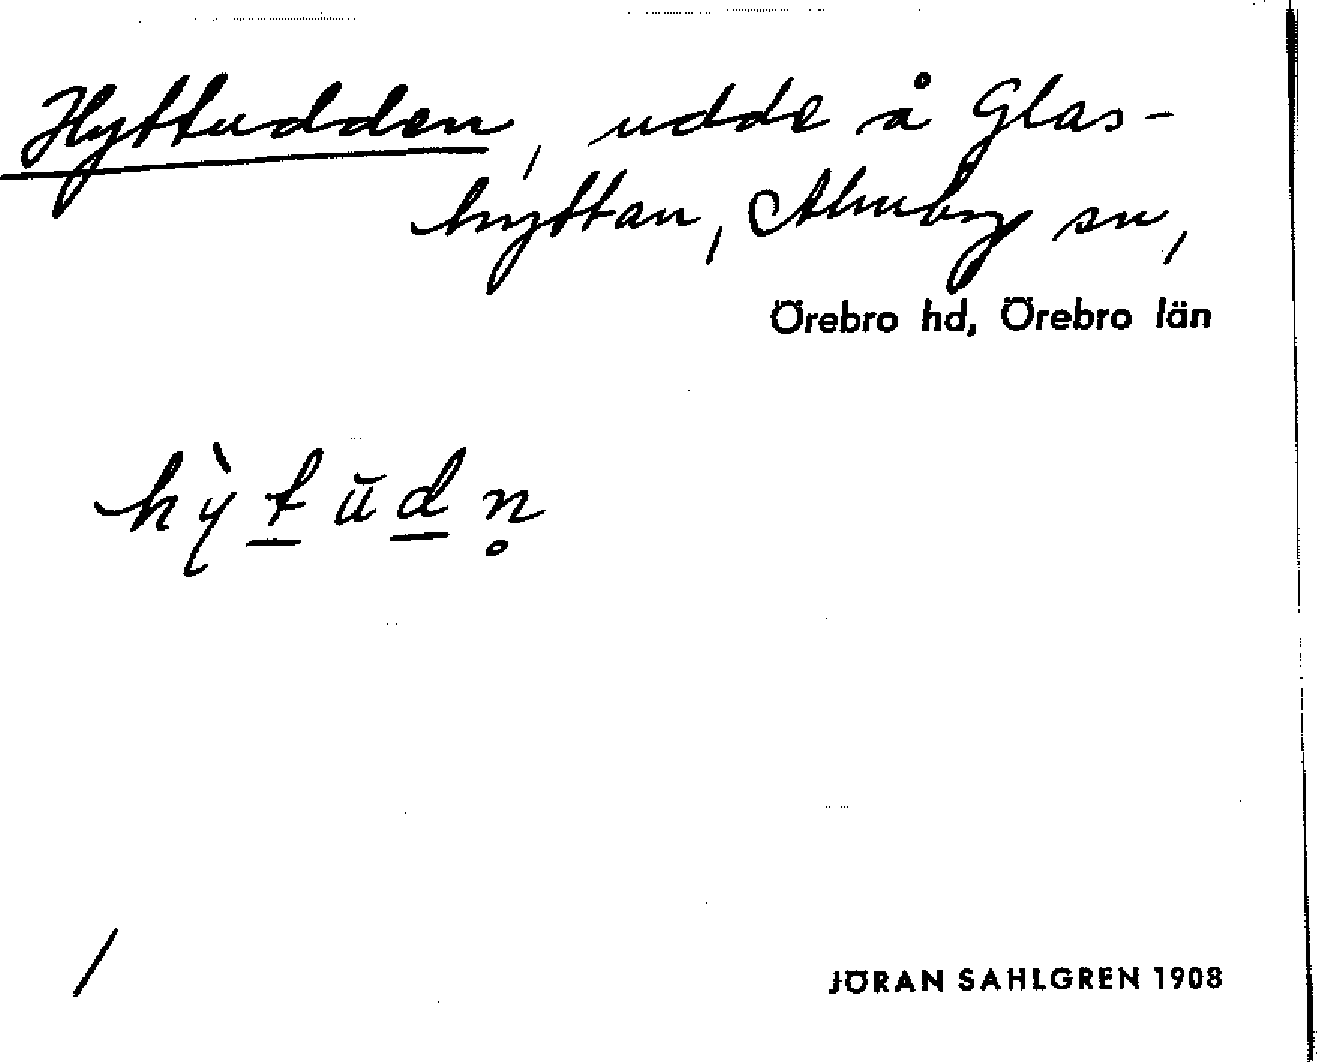 Hyttudden, udde å Glas-
hyttan, Almby sn,
Örebro hd, Örebro län
hỳt̲ŭd̲n̥
/
JÖRAN SAHLGREN 1908